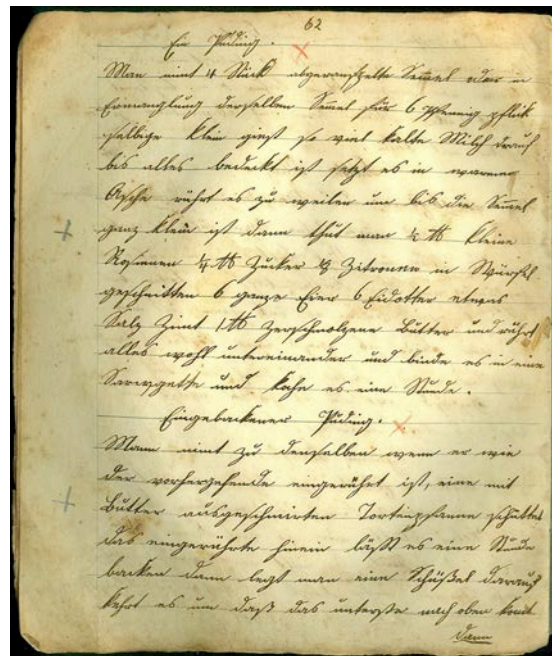 62
Ein Puding.
Man nimt 4 Stück abgeranfzelte Semel oder in
Ermanglung derselben Semel für 6 Pfennig pflük
selbige klein giest so viel kalte Milch drauf
bis alles bedeckt ist setzt es in warme
Asche rührt es zu weilen um bis die Semel
ganz klein ist dann thut man ½ ℔ kleine
Rosienen ¼ ℔ Zucker Zitronen in Würfel
geschnitten 6 ganze Eier 6 Eidotter etwas
Salz Zimt 1 ℔ zerschmolzene Butter und rührt
alles wohl untereinander und binde es in eine
und koche es eine Stunde.
Eingebackener Puding.
Mann nimt zu denselben wenn er wie
der vorhergehende eingerührt ist, eine mit
Butter ausgeschmirten Tortenpfanne schüttet
das eingerührte hinein läßt es eine Stunde
backen dann legt man eine Schüßel darauf
kehrt es um daß das unterste nach oben komt
dann